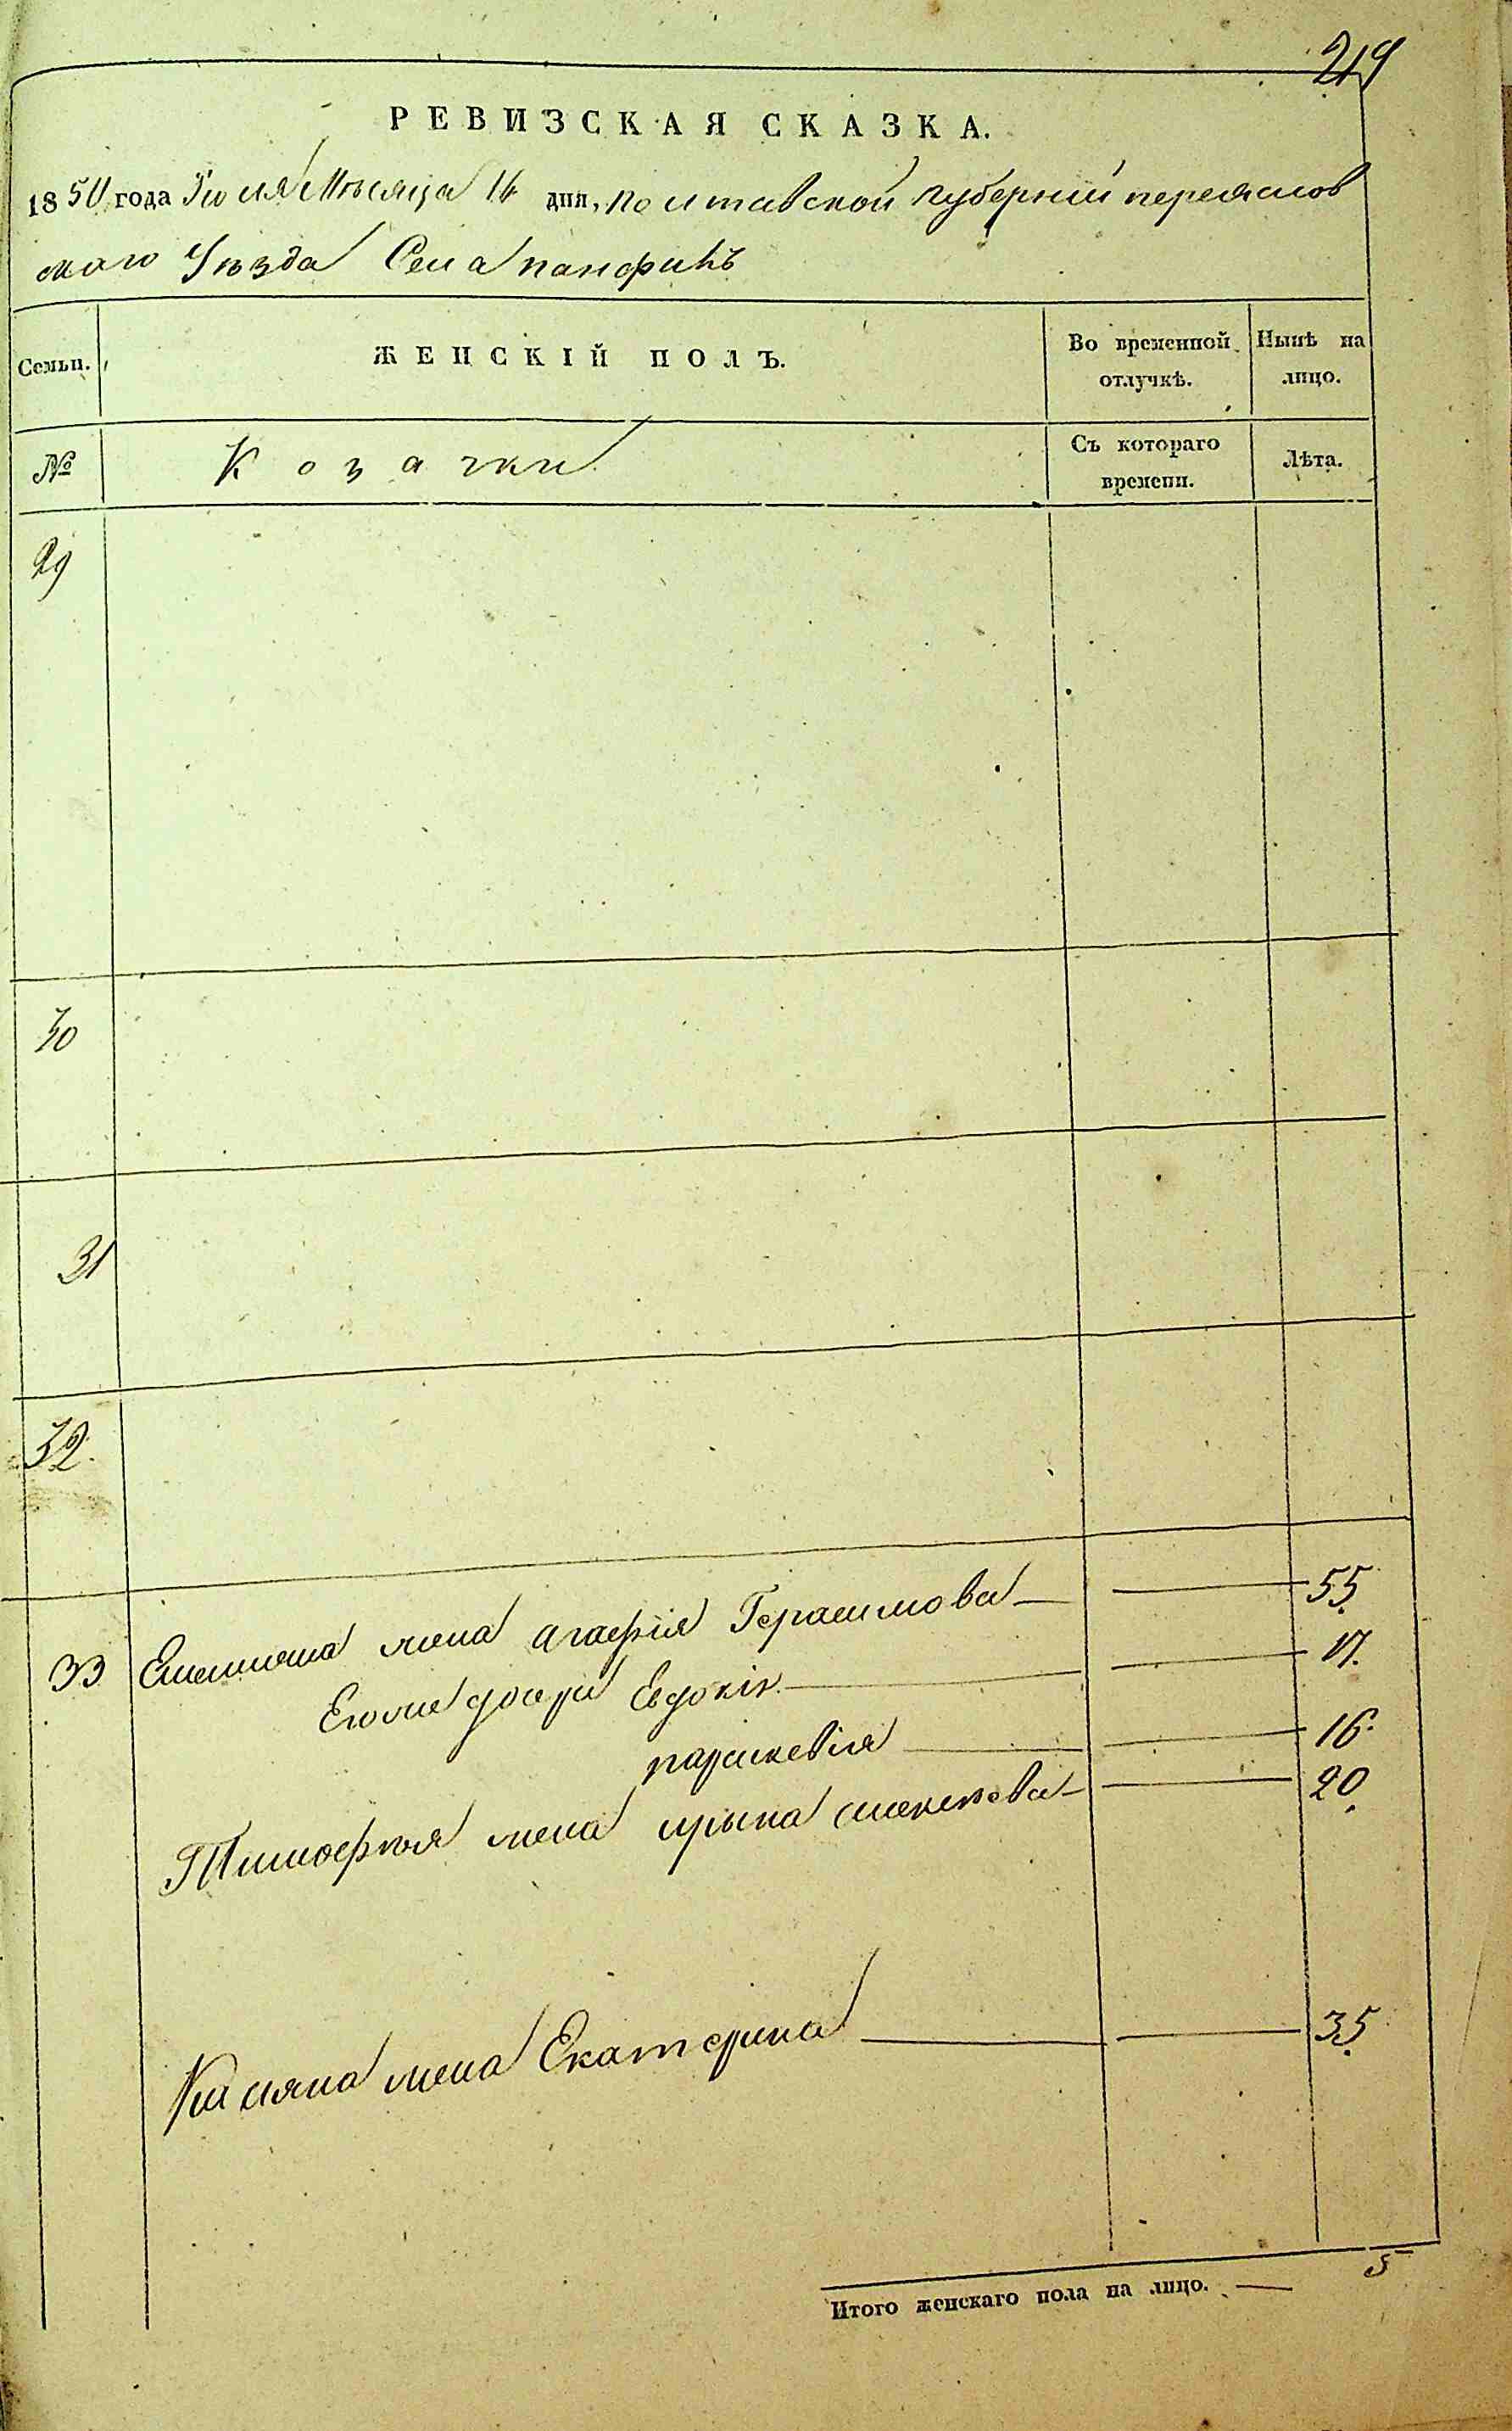 219
РЕВИЗСКАЯ СКАЗКА.
1850 года Іюля Мѣсяца 16 дня, полтавской губерніи переяслов
скаго Уѣзда Села панфилъ
Семьи. ЖЕНСКІЙ ПОЛЪ. Во временной отлучкѣ. Нынѣ на лицо.
№ Козачки Съ котораго времени. Лѣта.
29
30
31
32.
33 жена агафія Герасимова 55.
Его дочери Евдокія 17.
параскевія 16.
Тимофѣя жена ирына 20.
Касяна жена Екатерина 35.
Итого женскаго пола на лицо. — 5